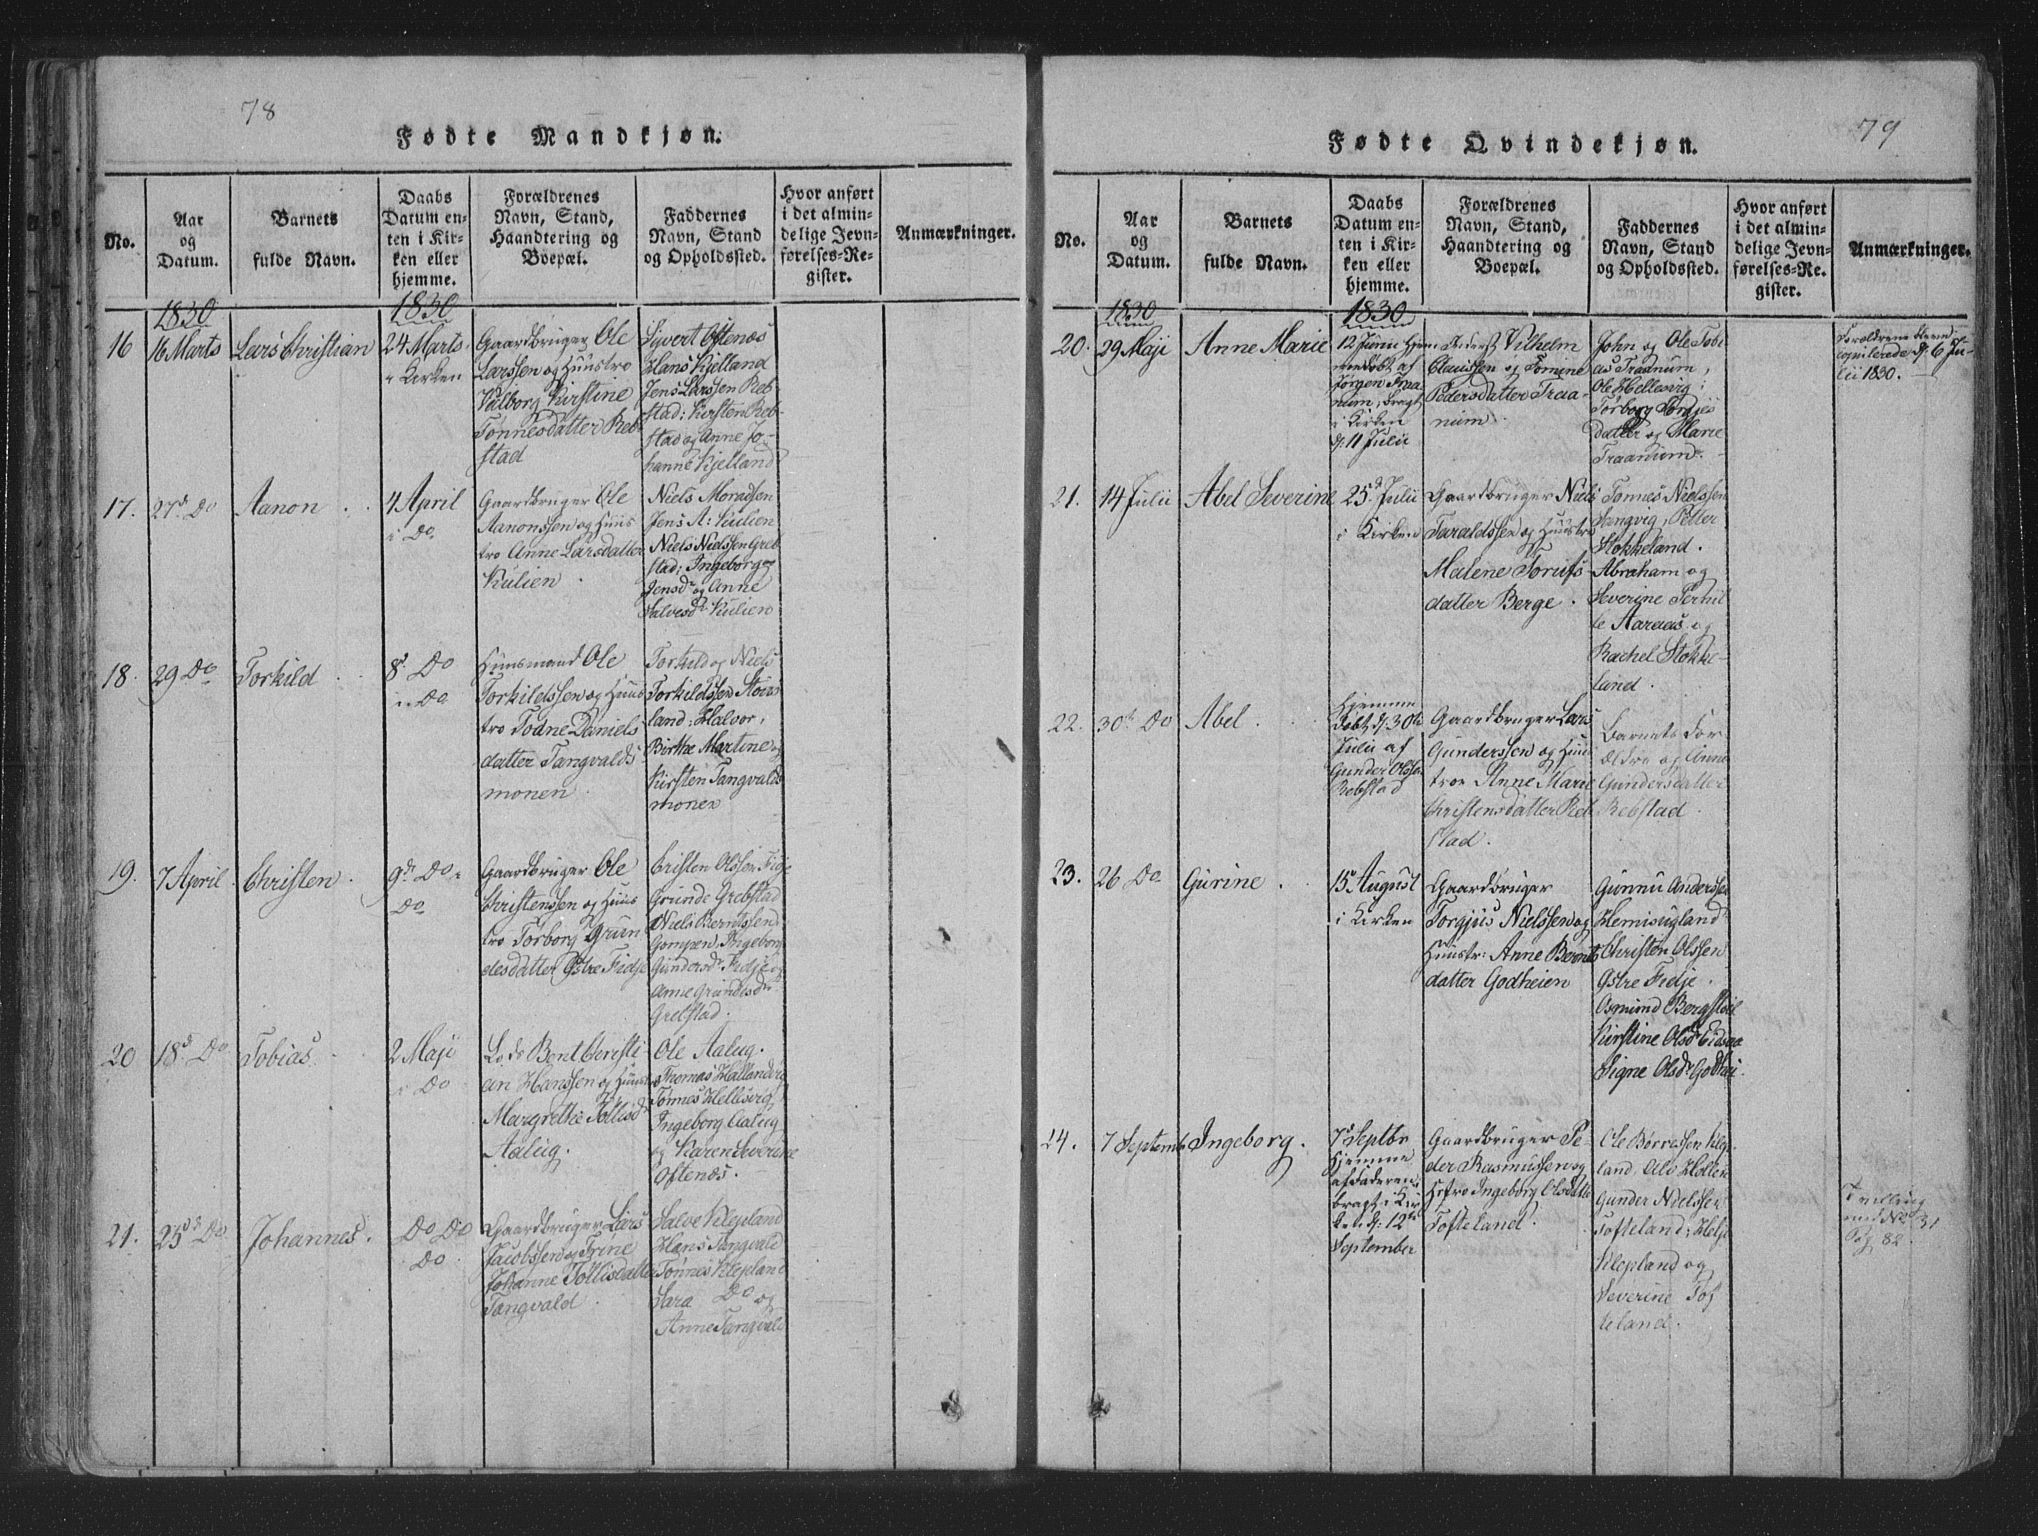 78
Fødte Mandkjøn.
No.
Aar
og
Datum.
Barnets
fulde Navn.
Daabs
Datum en-
ten i Kir-
ken eller
hjemme.
Forældrenes
Navn, Stand,
Haandtering og
Boepæl.
Faddernes
Navn, Stand
og Opholdssted.
Hvor anført
i det almin-
delige Jevn-
førelses-Re-
gister.
Anmærkninger.
1830
1830
16
16 Marts
Lars Christian
24 Marts
i Kirken
Gaardbruger Ole
Larssen og Huustro
Valborg Kirstine
Tønnesdatter Reb-
stad
Sivert Oftenæs
Hans Kjelland
Jens Larssen Reb-
stad; Kirsten Reb-
stad og Anne Jo-
hanne Kjelland
17.
27d. Do
Aanon
4 April
i Do
Gaardbruger Ole
Aanonssen og Huus
tro Anne Larsdatter
Kulien
Niels Moradsen
Jens A: Kulien
Niels Nielssen Greb-
stad; Ingeborg
Jensdr og Anne
Salvesdr Kulien
18.
29 Do
Torkild
8d. Do
i Do
Huusmand Ole
Torkildssen og Huus
tro Todne Daniels
datter Tangvalds
monen
Torkild og Niels
Torkildssen Stois-
land; Halvor,
Birthe Martine og
Kirsten Tangvalds
monen
19.
7 April
Christen
9d. Do i
Do
Gaardbruger Ole
Christenssen og Huus
tro Torborg Grun
desdatter Østre Fidje
Cristen Olssen Fidje
Grunde Grebstad
Niels Berntssen
Gompen, Ingeborg
Gundersdr Fidje og
Anne Grundesdr
Grebstad.
20
18d. Do
Tobias
2 Maji
i Do
Lods Bent Christi
an Hanssen og Huustr
Margrethe Tollisdr
Aalug.
Ole Aalug.
Thomas Hallandvig
Tønnes Hellesvig,
Ingeborg Aalug
og Karen Severine
Oftenæs.
21.
25d. Do
Johannes.
Do Do
Do
Gaardbruger Lars
Jacobssen og Trine
Johanne Tollisdatter
Tangvald
Salve Klepland
Hans Tangvald
Tønnes Klepland
Sara Do og
Anne Tangvald
79
Fødte Qvindekjøn.
No.
Aar
og
Datum.
Barnets
fulde Navn.
Daabs
Datum en-
ten i Kir-
ken eller
hjemme.
Forældrenes
Navn, Stand,
Haandtering og
Boepæl.
Faddernes
Navn, Stand
og Opholdssted.
Hvor anført
i det almin-
delige Jevn-
førelses-Re-
gister.
Anmærkninger.
1830
1830
20.
29 Maji
Anne Marie
12 Junii Hjem
medøbt af
Jørgen Traa-
num, bragt
i Kirken
d. 11 Julii
Vilhelm
Claussen og Tomine
Pedersdatter Traa-
num
John og Ole Tobi
as Traanum,
Ole Hellesvig;
Torborg Tørrjes
datter og Marie
Traanum
Forældrene bleve
copulerede d. 6 Ju-
lii 1830.
21.
14 Julii
Abel Severine
25d Julii
i Kirken
Gaardbruger Niels
Taraldssen og Huustro
Malene Torufs
datter Berge
Tønnes Nielssen
Langvig, Petter
Stokkeland.
Abraham og
Severine Pernil
le Aaraas og
Rachel Stokke-
land.
22.
30te Do
Abel
Hjemme
døbt d. 30te
Julii af
Gunder Olssen
Rebstad
Gaardbruger Lars
Gunderssen og Huus
troe Anne Marie
Christensdatter Reb
stad.
Barnets For
ældre og Anne
Gundersdatter
Rebstad
23.
26 Do
Gurine
15 August
i Kirken
Gaardbruger
Torgjus Nielssen og
Huustr: Anne Bernts
datter Godheien
Gunnu Anderssen
Hemisugland
Christen Olssen
Østre Fidje.
Osmund Bergstøl
Kirstine Olsdr Eidsaa
Signe Olsdr Godhei
24.
7 Septemb
Ingeborg.
7d Septbr
Hjemme
af Faderen;
bragt i Kir
ken d. 12te
September
Gaardbruger Pe-
der Rasmussen og
Hustro Ingeborg Olsdatter
Tofteland.
Ole Børressen Klep-
land, Ole Holten
Gunder Nielssen
Tofteland; Helje
Klepland og
Severine Tof
teland.
Tvilling
med No 31
Pag 82.